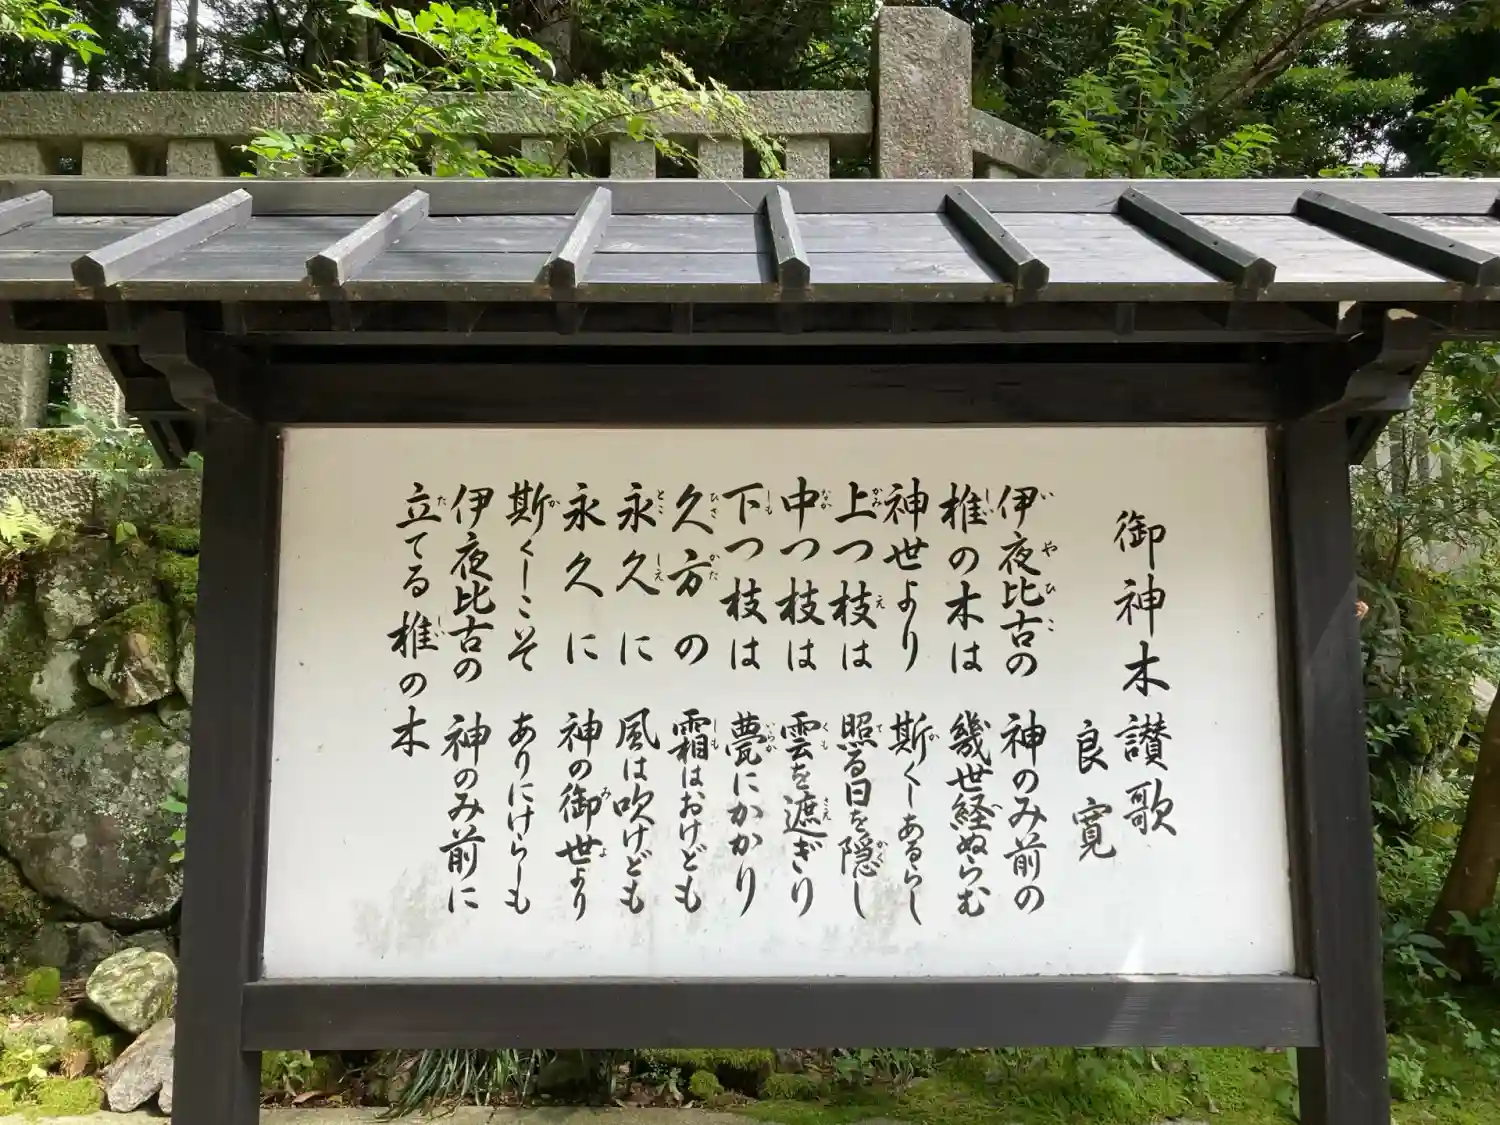 御神木讃歌
良寛
伊夜比古の 神のみ前の
椎の木は 幾世経ぬらむ
神世より 斯くしあるらし
上つ枝は 照る日を隠し
中つ枝は 雲を遮ぎり
下つ枝は 甍にかかり
久方の 霜はおけども
永久に 風は吹けども
永久に 神の御世より
斯くしこそ ありにけらしも
伊夜比古の 神のみ前に
立てる椎の木